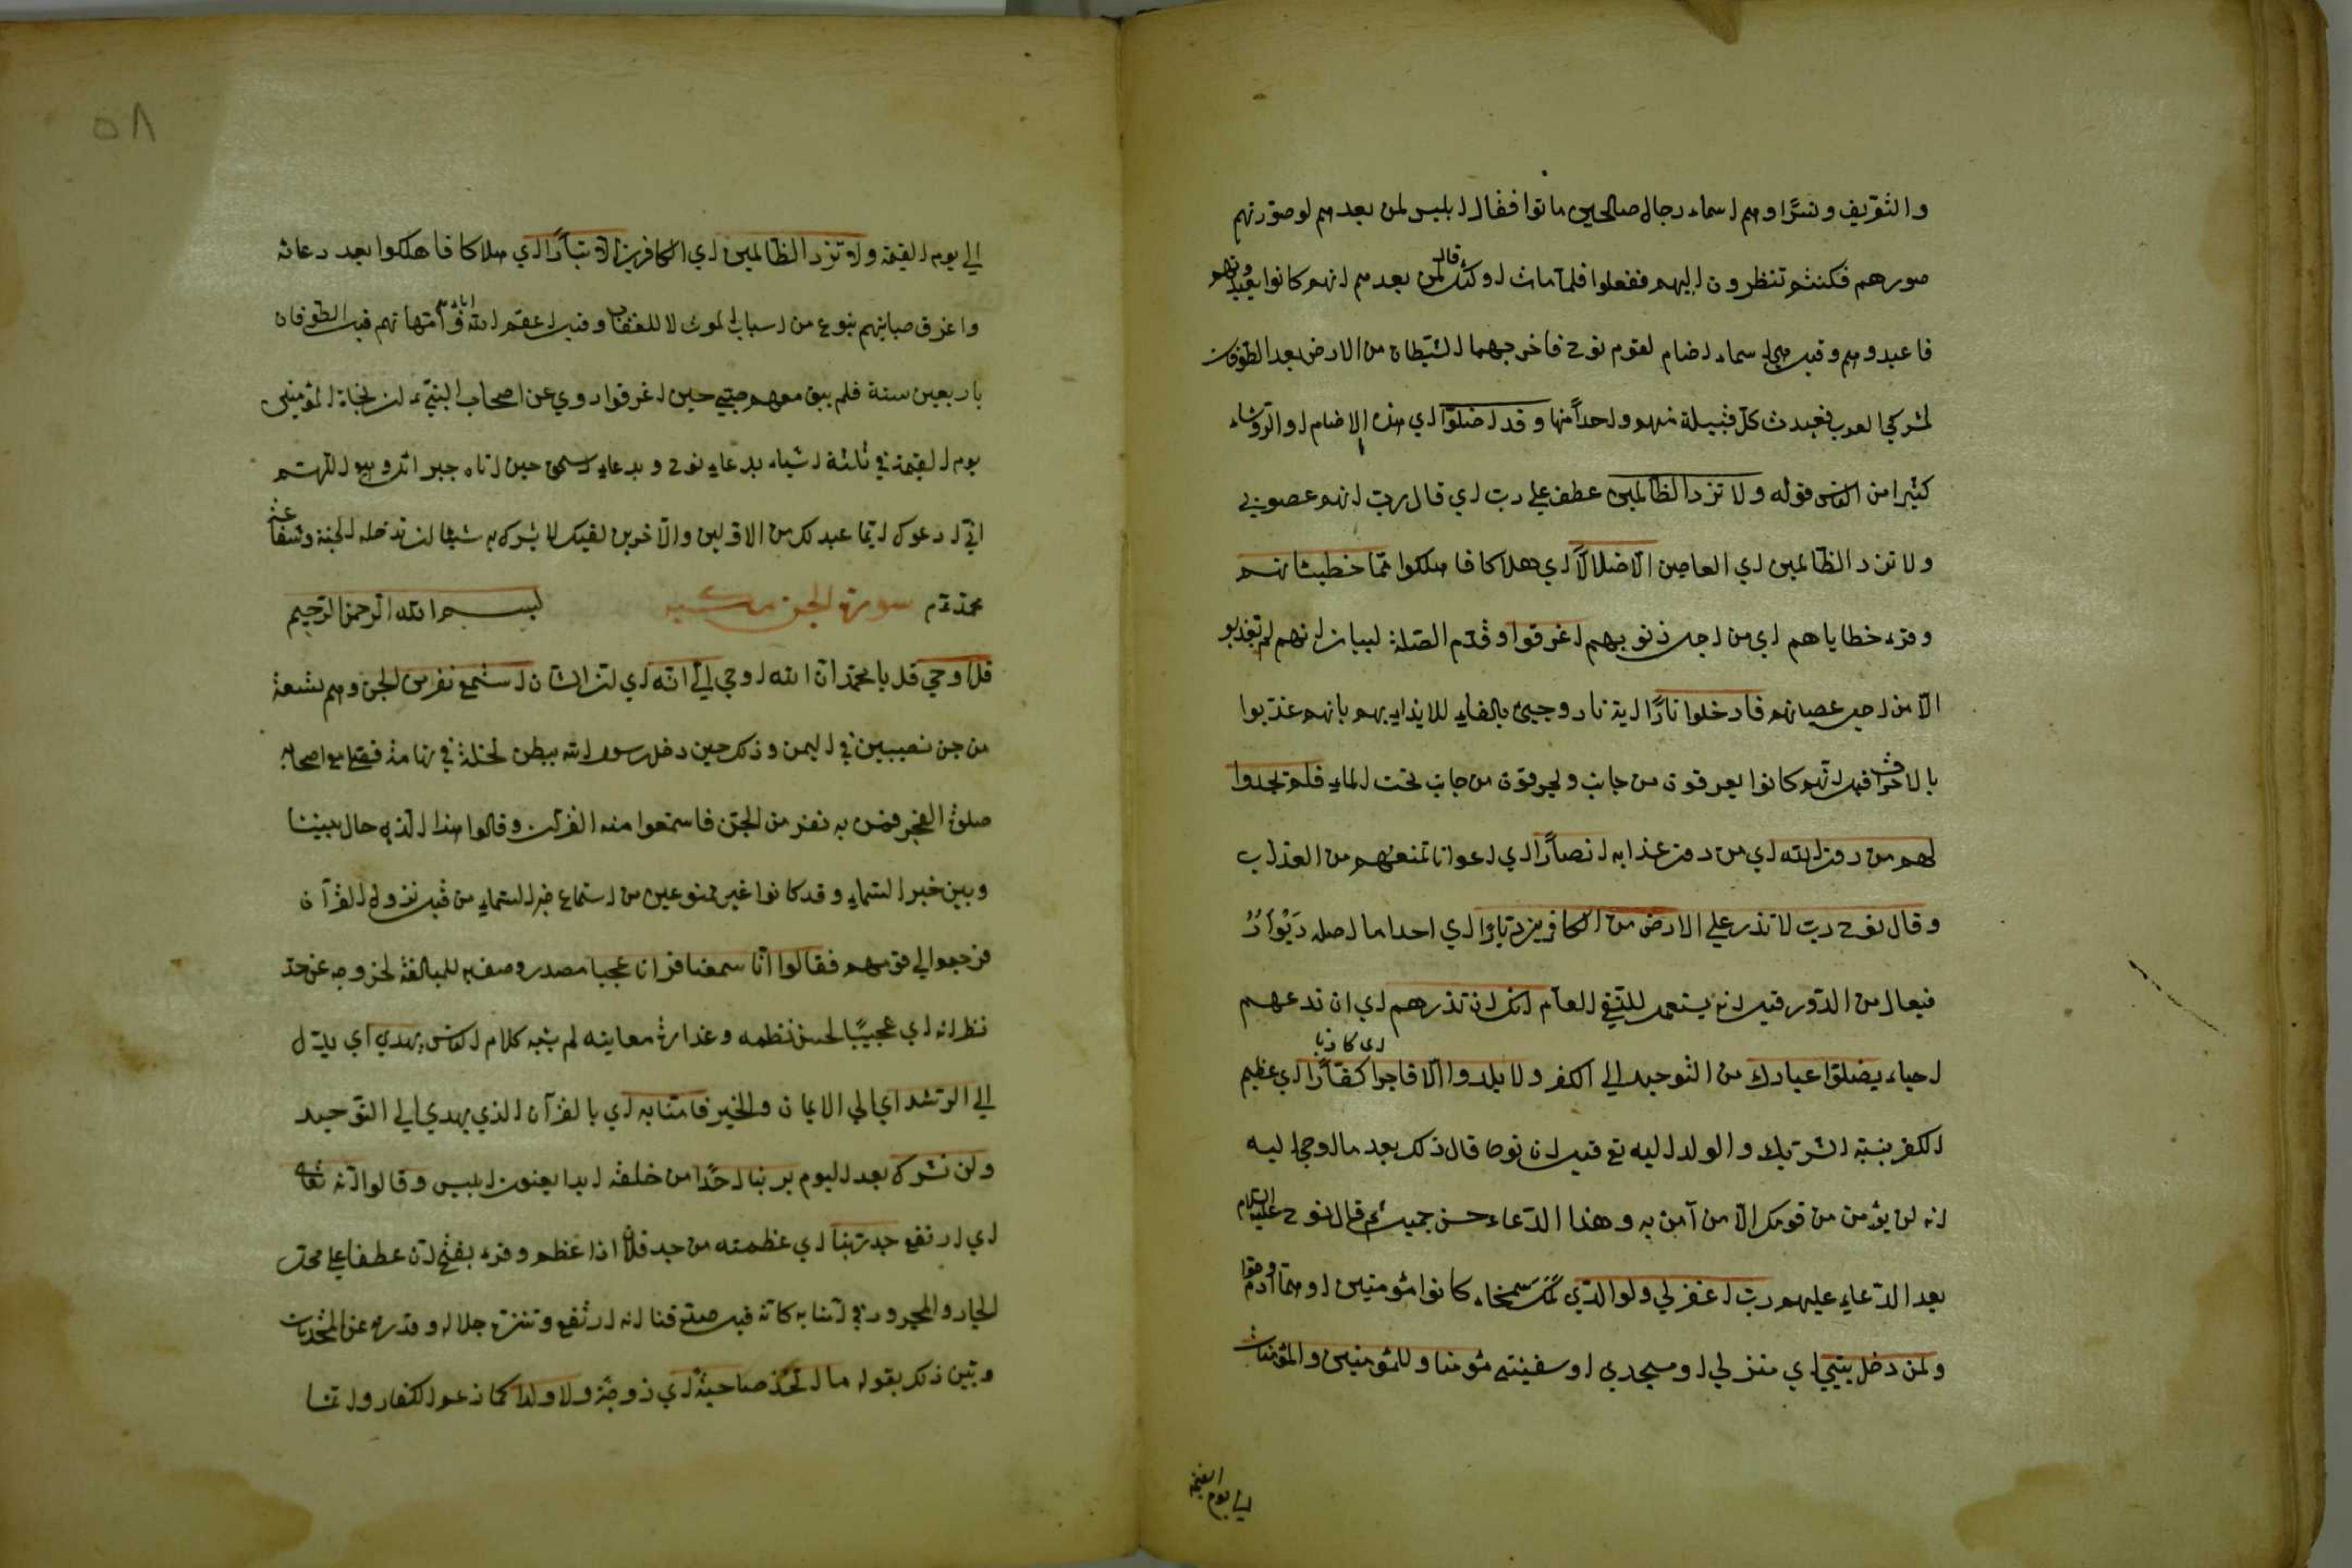 والتعريف ونسرا وهم اسماء رجال صالحين ماتوا فقال ابليس لمن بعدهم لو صورتم
صورهم فكنتم تنظرون اليهم ففعلوا فلما مات اولئك قال لمن بعدهم انهم كانوا يعبدونهم
فاعبدوهم وقيل هي اسماء اصنام لقوم نوح فاخرجهما الشيطان من الارض بعد الطوفان
لمشركي العرب فعبدت كل قبيلة منهم واحدا منها وقد اضلوا اي هذه الاصنام او الرؤساء
كثيرا من الناس قوله ولا تزد الظالمين عطف على رب اي قال رب انهم عصوني
ولا تزد الظالمين اي العاصين الا ضلالا اي هلاكا فاهلكوا مما خطيئاتهم
وقرء خطاياهم اي من اجل ذنوبهم اغرقوا وقدم الصلة لبيان انهم لم يعذبوا
الا من اجل عصيانهم فادخلوا نارا اية نار وجيئ بالفاء للايذان بهم بانهم عذبوا
بالاحراق فيل انهم كانوا يغرقون من جانب ويحرقون من جانب تحت الماء فلم يجدوا
لهم من دون الله اي من دون عذابه انصارا اي اعوانا تمنعهم من العذاب
وقال نوح رب لا تذر على الارض من الكافرين ديارا اي احدا ما اصله ديوار
فيعال من الدور قيل انه يستعمل للنفي العام انك ان تذرهم اي ان تدعهم
احياء يضلوا عبادك من التوحيد الى الكفر ولا يلدوا الا فاجرا اي كاذبا كفارا اي عظيم
الكفر بنسبة الشريك والولد اليه تع قيل ان نوحا قال ذلك بعد ما اوحي اليه
انه لن يؤمن من قومك الا من آمن به وهذا الدعاء حسن جميل ثم قال نوح عليه السلام
بعد الدعاء عليهم رب اغفر لي ولوالدي لمك سمخاء كانوا مؤمنين او هما آدم وحوا
ولمن دخل بيتي اي منزلي او مسجدي او سفينتي مؤمنا وللمؤمنين والمؤمنات
الى يوم القيمة
٥٨
الى يوم القيمة ولا تزد الظالمين اي الكافرين الا تبارا اي هلاكا فاهلكوا بعد دعائه
واغرق صبيانهم بنوع من اسباب الموت لا للعقاب وقيل اعقم الله امهاتهم قبل الطوفان
باربعين سنة فلم يبق معهم صبي حين اغرقوا روي عن اصحاب النبي ان نجاة المؤمنين
يوم القيمة في ثلثة اشياء بدعاء نوح وبدعاء اسحق حين اتاه جبرائل وهو اللهم
اني ادعوك ايما عبد لك من الاولين والآخرين لقيك لا يشرك به شيئا ان تدخله الجنة وشفاعة
محمد عم سورة الجن مكية بسم الله الرحمن الرحيم
قل اوحي قل يا محمد ان الله اوحي الي انه اي ان الشان استمع نفر من الجن وهم تسعة
من جن نصيبين في اليمن وذلك حين دخل رسول الله ببطن نخلة في تهامة فصلى مع اصحابه
صلوة الفجر فمر به نفر من الجن فاستمعوا منه القرآن وقالوا هذا الذي حال بيننا
وبين خبر السماء وقد كانوا غير ممنوعين من استماع خبر السماء من قبل نزول القرآن
فرجعوا الى قومهم فقالوا انا سمعنا قرانا عجبا مصدر وصف به للمبالغة لخروجه عن حد
نظرائه اي عجيبا لحسن نظمه وغزارة معانيه لم يشبه كلام الناس يهدي اي يدل
الى الرشد اي الى الايمان والخير فآمنا به اي بالقرآن الذي يهدي الى التوحيد
ولن نشرك بعد اليوم بربنا احدا من خلقه ابدا يعنون ابليس وقالوا انه تعالى
اي ارتفع جد ربنا اي عظمته من جد فلان اذا عظم وقرء بفتح ان عطفا على محل
الجار والمجرور في آمنا به كانه قيل صدقنا انه ارتفع وتنزه جلاله وقدره عن المحدثات
وبين ذلك بقوله ما اتخذ صاحبة اي زوجة ولا ولدا كما زعم الكفار وانما